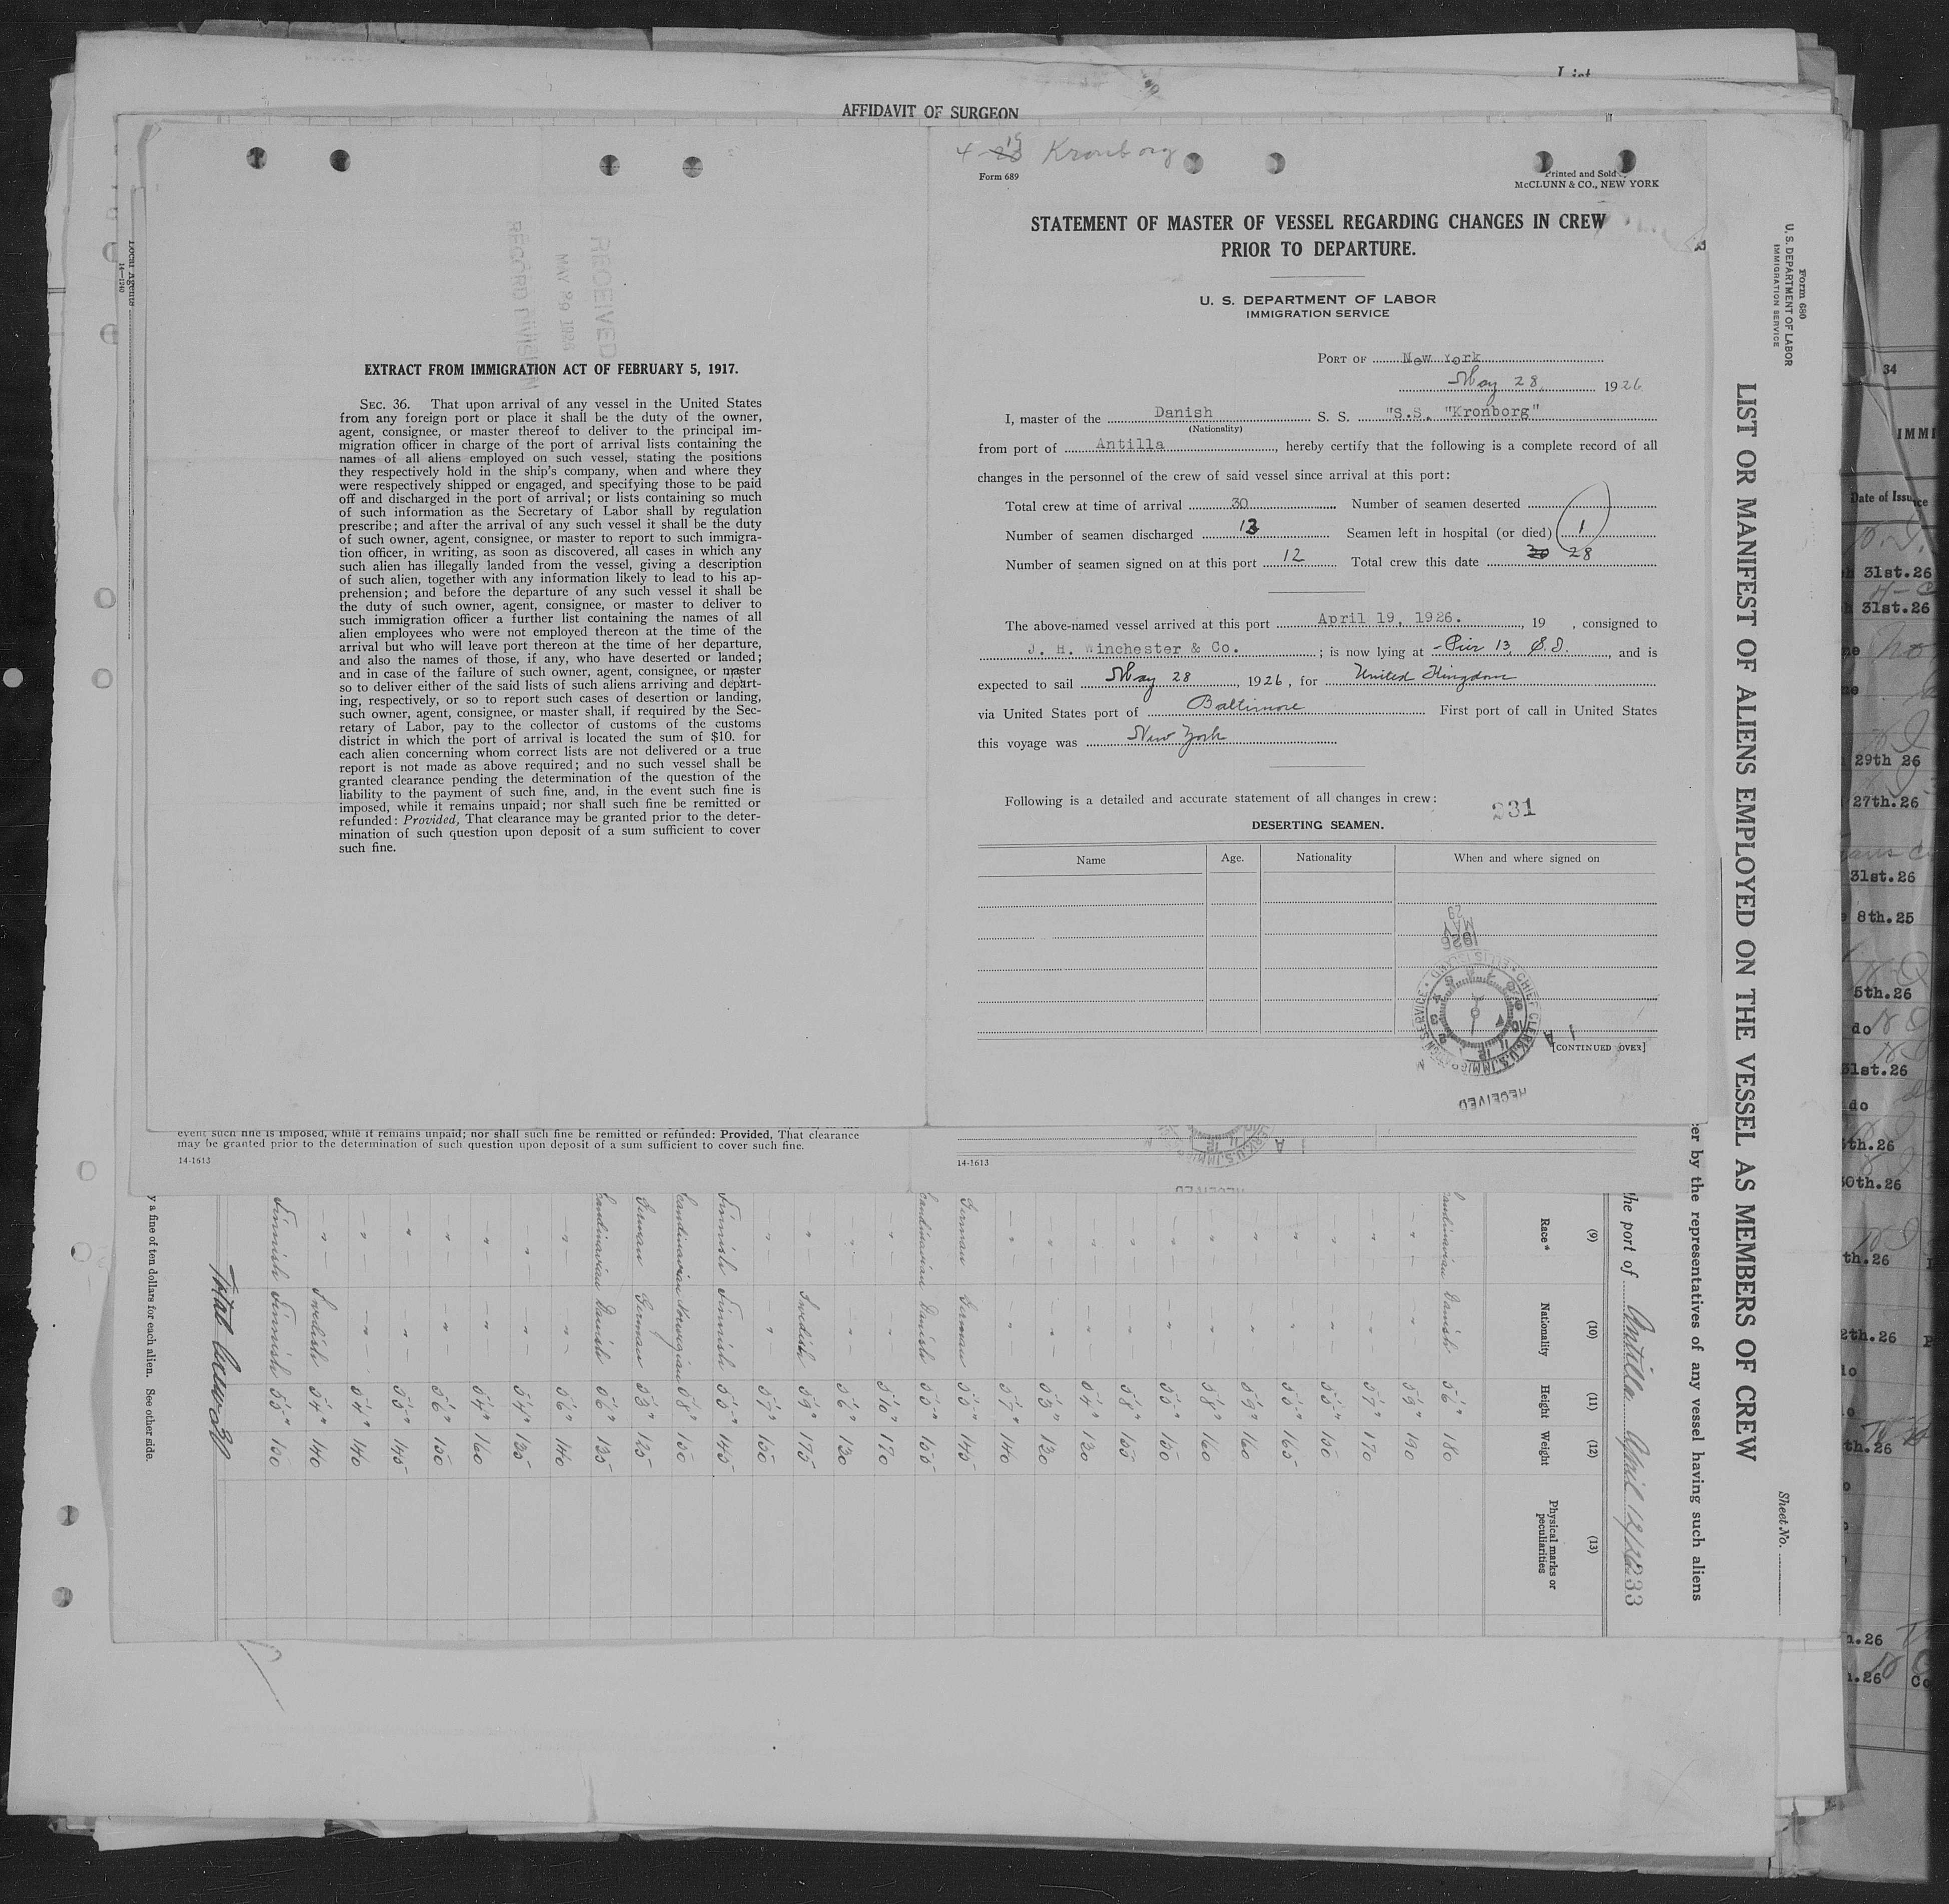 AFFIDAVIT OF SURGEON
RECEIVED
MAY 29 1926
RECORD DIVISION
EXTRACT FROM IMMIGRATION ACT OF FEBRUARY 5, 1917.
SEC. 36. That upon arrival of any vessel in the United States
from any foreign port or place it shall be the duty of the owner,
agent, consignee, or master thereof to deliver to the principal im-
migration officer in charge of the port of arrival lists containing the
names of all aliens employed on such vessel, stating the positions
they respectively hold in the ship's company, when and where they
were respectively shipped or engaged, and specifying those to be paid
off and discharged in the port of arrival; or lists containing so much
of such information as the Secretary of Labor shall by regulation
prescribe; and after the arrival of any such vessel it shall be the duty
of such owner, agent, consignee, or master to report to such immigra-
tion officer, in writing, as soon as discovered, all cases in which any
such alien has illegally landed from the vessel, giving a description
of such alien, together with any information likely to lead to his ap-
prehension; and before the departure of any such vessel it shall be
the duty of such owner, agent, consignee, or master to deliver to
such immigration officer a further list containing the names of all
alien employees who were not employed thereon at the time of the
arrival but who will leave port thereon at the time of her departure,
and also the names of those, if any, who have deserted or landed;
and in case of the failure of such owner, agent, consignee, or master
so to deliver either of the said lists of such aliens arriving and depart-
ing, respectively, or so to report such cases of desertion or landing,
such owner, agent, consignee, or master shall, if required by the Sec-
retary of Labor, pay to the collector of customs of the customs
district in which the port of arrival is located the sum of $10. for
each alien concerning whom correct lists are not delivered or a true
report is not made as above required; and no such vessel shall be
granted clearance pending the determination of the question of the
liability to the payment of such fine, and, in the event such fine is
imposed, while it remains unpaid; nor shall such fine be remitted or
refunded: Provided, That clearance may be granted prior to the deter-
mination of such question upon deposit of a sum sufficient to cover
such fine.
4-19 Kronborg
Form 689
Printed and Sold
McCLUNN & CO., NEW YORK
STATEMENT OF MASTER OF VESSEL REGARDING CHANGES IN CREW
PRIOR TO DEPARTURE.
U. S. DEPARTMENT OF LABOR
IMMIGRATION SERVICE
PORT OF New York
May 28 1926
I, master of the Danish S. S. "S.S. "Kronborg"
(Nationality)
from port of Antilla, hereby certify that the following is a complete record of all
changes in the personnel of the crew of said vessel since arrival at this port:
Total crew at time of arrival 30 Number of seamen deserted
Number of seamen discharged 13 Seamen left in hospital (or died) 1
Number of seamen signed on at this port 12 Total crew this date 30 28
The above-named vessel arrived at this port April 19, 1926., 19 , consigned to
J. H. Winchester & Co. ; is now lying at Pier 13, S.I., and is
expected to sail May 28, 1926, for United Kingdom
via United States port of Baltimore First port of call in United States
this voyage was New York
Following is a detailed and accurate statement of all changes in crew:
231
DESERTING SEAMEN.
Name Age. Nationality When and where signed on
1926
MAY
29
CHIEF CLERK, U.S. IMMIGRATION SERVICE · ELLIS ISLAND
RECEIVED
[CONTINUED OVER]
event such fine is imposed, while it remains unpaid; nor shall such fine be remitted or refunded: Provided, That clearance
may be granted prior to the determination of such question upon deposit of a sum sufficient to cover such fine.
14-1613
14-1613
Form 680
U. S. DEPARTMENT OF LABOR
IMMIGRATION SERVICE
Sheet No.
LIST OR MANIFEST OF ALIENS EMPLOYED ON THE VESSEL AS MEMBERS OF CREW
er by the representatives of any vessel having such aliens
the port of Antilla April 12/26
233
(9) (10) (11) (12) (13)
Race * Nationality Height Weight Physical marks or peculiarities
Scandinavian Danish 5'6" 180
5'8" 190
5'7" 170
5'5" 150
5'5" 165
5'9" 160
5'8" 160
5'5" 150
5'8" 155
5'4" 130
5'3" 130
5'7" 140
German German 5'5" 145
Scandinavian Danish 5'5" 155
5'10" 170
5'6" 130
Swedish 5'9" 175
5'7" 150
Finnish Finnish 5'5" 145
Scandinavian Norwegian 5'8" 150
German German 5'3" 125
Scandinavian Danish 5'6" 135
5'6" 140
5'4" 135
5'4" 160
5'6" 150
5'5" 145
5'4" 140
Swedish 5'4" 140
Finnish Finnish 5'5" 130
Total Crew 30
y a fine of ten dollars for each alien. See other side.
Local Agents
14-1240
34
IMMI
Date of Issuance
31st.26
31st.26
29th 26
27th.26
31st.26
8th.25
5th.26
do
31st.26
do
th.26
30th.26
th.26
2th.26
th.26